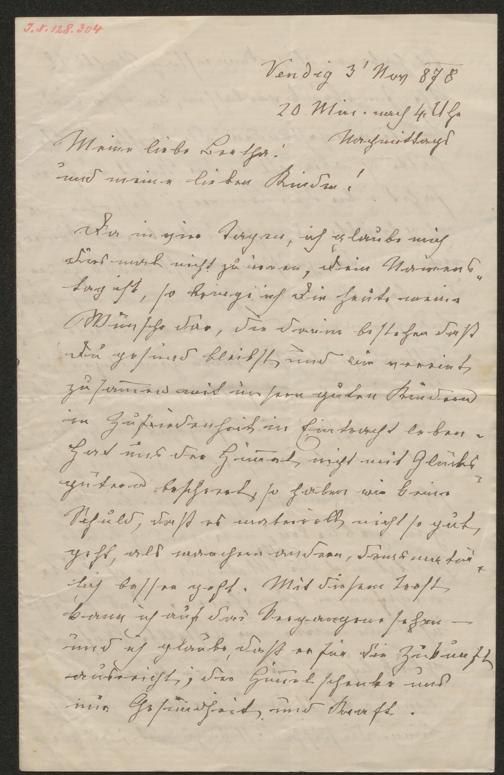 I.N. 128.304
Vendig 3' Nov 878
20 Min. nach 4 Uhr
Nachmittags
Meine liebe Bertha!
und meine lieben Kinder!
Da in vier Tagen, ich glaube mich
diesmal nicht zu irren, Dein Namens-
tag ist, so bringe ich Dir heute meine
Wünsche dar, die darin bestehen daß
Du gesund bleibst und wir vereint
zusammen mit unsern guten Kindern
in Zufriedenheit in Eintracht leben -
Hat uns der Himmel nicht mit Glücks-
gütern beschert, so haben wir keine
Schuld, daß es materiell nicht so gut
geht, als manchem andern, dem's natür-
lich besser geht. Mit diesem Trost
kann ich auf das Vergangene sehen —
und ich glaube, daß er für die Zukunft
ausreicht; der Himmel schenke uns
nur Gesundheit und Kraft.